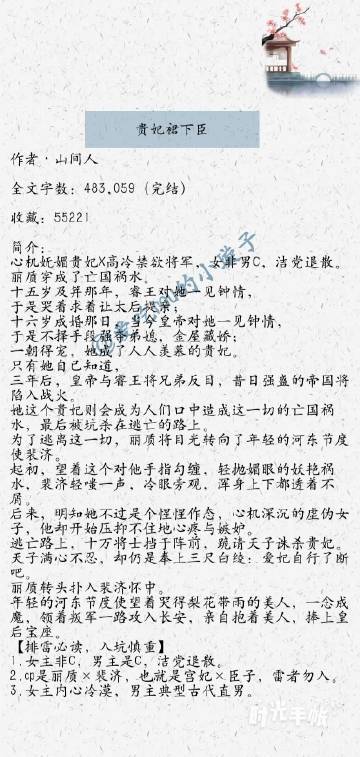 贵妃裙下臣
作者·山间人
全文字数：483,059（完结）
收藏：55221
简介：
心机妩媚贵妃X高冷禁欲将军，女非男C、洁党退散。
丽质穿成了亡国祸水。
十五岁及笄那年，睿王对她一见钟情，
于是哭着求着让太后提亲；
十六岁成婚那日，当今皇帝对她一见钟情，
于是不择手段强夺弟媳，金屋藏娇；
一朝得宠，她成了人人羡慕的贵妃。
只有她自己知道，
三年后，皇帝与睿王将兄弟反目，昔日强盛的帝国将
陷入战火。
她这个贵妃则会成为人们口中造成这一切的亡国祸
水，最后被坑杀在逃亡的路上。
为了逃离这一切，丽质将目光转向了年轻的河东节度
使裴济。
起初，望着这个对他手指勾缠，轻抛媚眼的妖艳祸
水，裴济轻嗤一声，冷眼旁观，浑身上下都透着不
屑。
后来，明知她不过是个惺惺作态，心机深沉的虚伪女
子，他却开始压抑不住地心疼与嫉妒。
逃亡路上，十万将士挡于阵前，跪请天子诛杀贵妃。
天子满心不忍，却仍是奉上三尺白绫：爱妃自行了断
吧。
丽质转头扑入裴济怀中。
年轻的河东节度使望着哭得梨花带雨的美人，一念成
魔，领着叛军一路攻入长安，亲自抱着美人，捧上皇
后宝座。
【排雷必读，入坑慎重】
1.女主非C，男主是C，洁党退散。
2.cp是丽质×裴济，也就是宫妃×臣子，雷者勿入。
3.女主内心冷漠，男主典型古代直男。
时光手帐